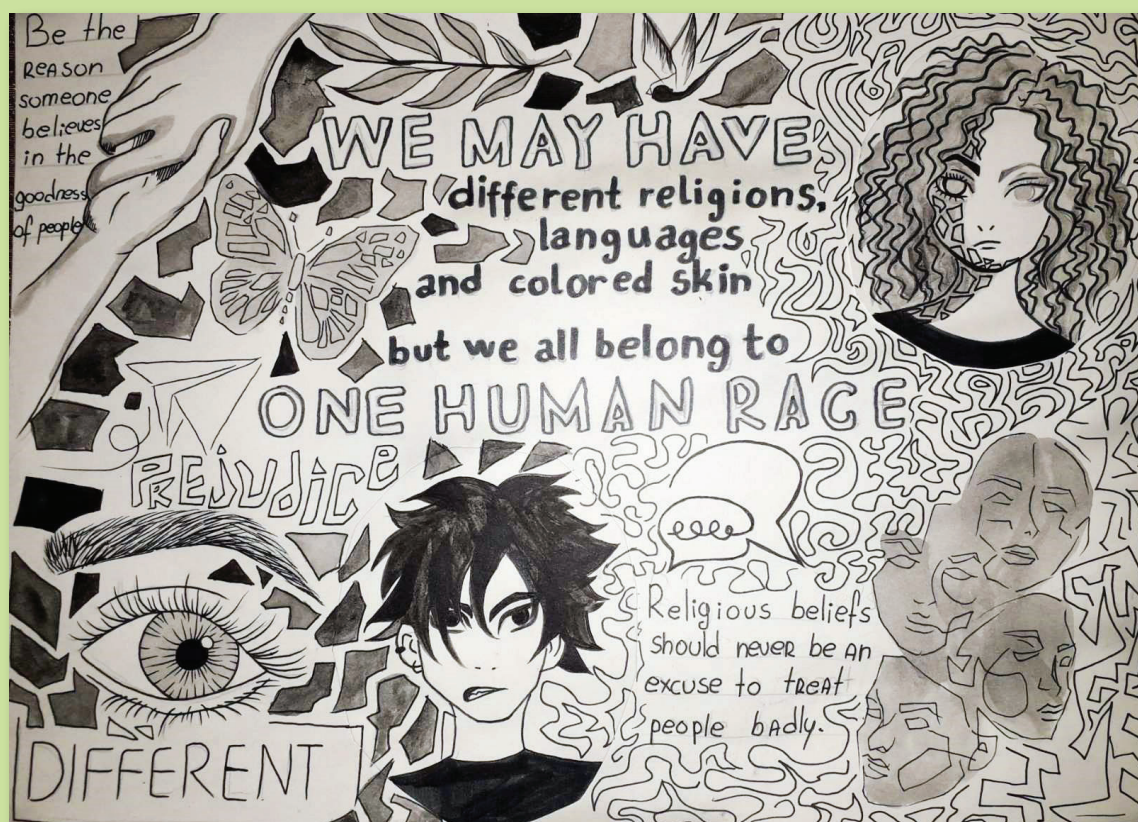 Be the
reason
someone
believes
in the
goodness
of people
WE MAY HAVE
different religions,
languages
and colored skin
but we all belong to
ONE HUMAN RACE
PREJUDICE
DIFFERENT
Religious beliefs
should never be an
excuse to treat
people badly.